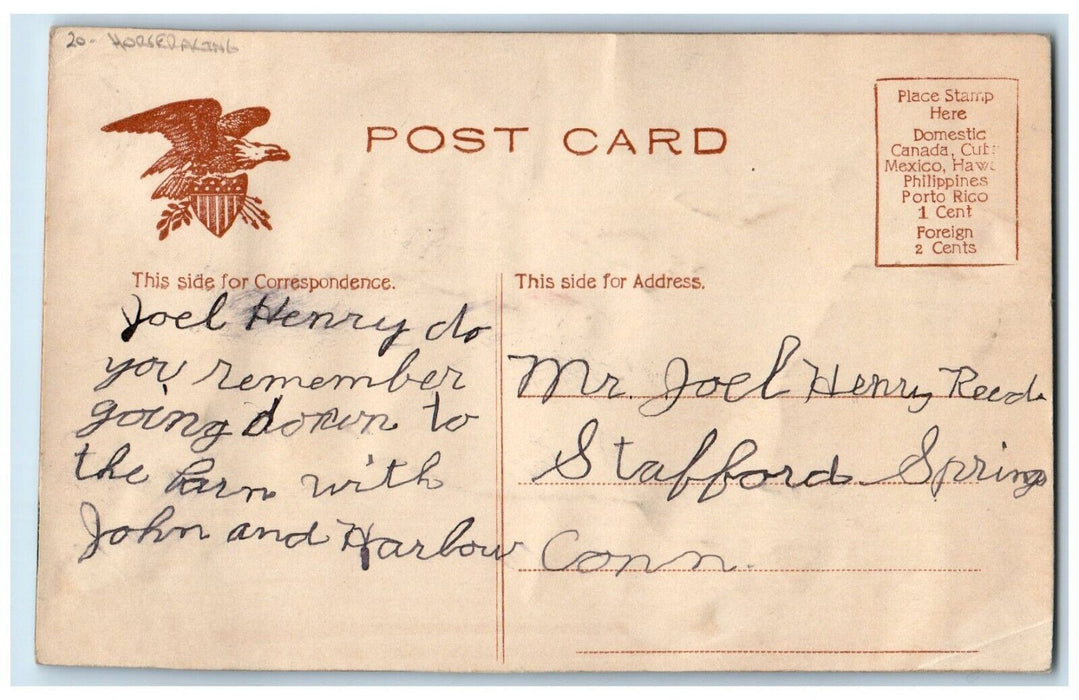 20- HORSERACING
POST CARD
Place Stamp
Here
Domestic
Canada, Cub
Mexico, Haw
Philippines
Porto Rico
1 Cent
Foreign
2 Cents
This side for Correspondence.
Joel Henry do
you remember
going down to
the barn with
John and Harlow
This side for Address.
Mr. Joel Henry Reed.
Stafford Springs
Conn.